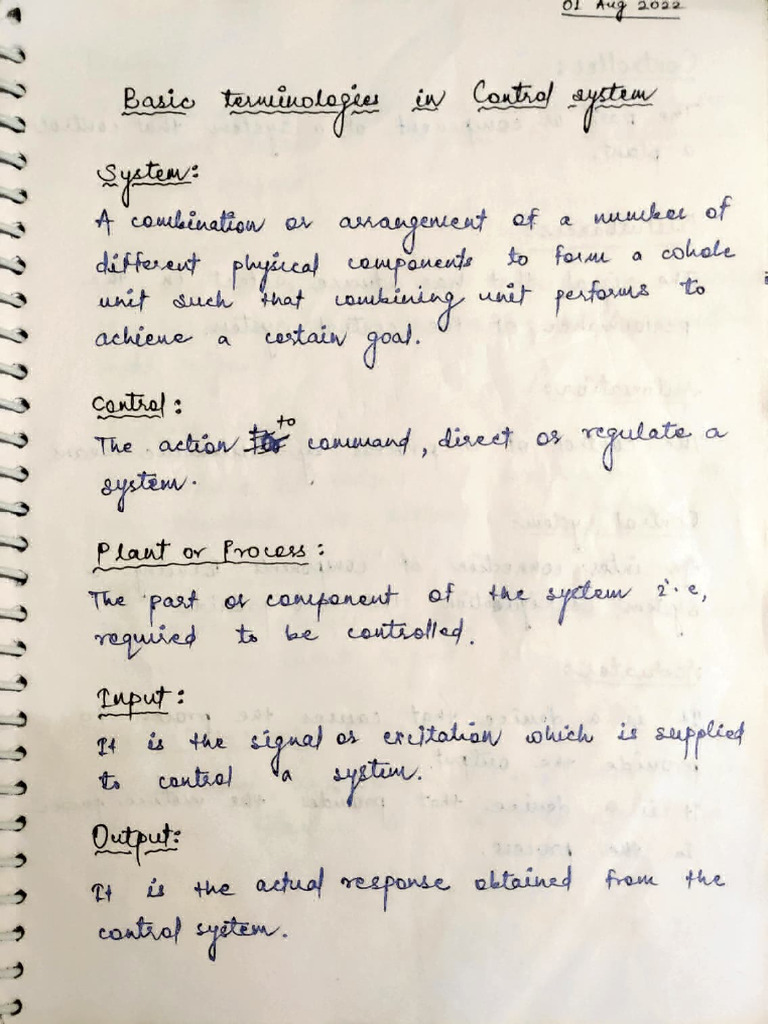 01 Aug 2022
Basic terminologies in Control system
System:
A combination or arrangement of a number of
different physical components to form a whole
unit such that combining unit performs to
achieve a certain goal.
Control:
The action to command, direct or regulate a
system.
Plant or Process:
The part or component of the system i.e,
required to be controlled.
Input:
It is the signal or excitation which is supplied
to control a system.
Output:
It is the actual response obtained from the
control system.